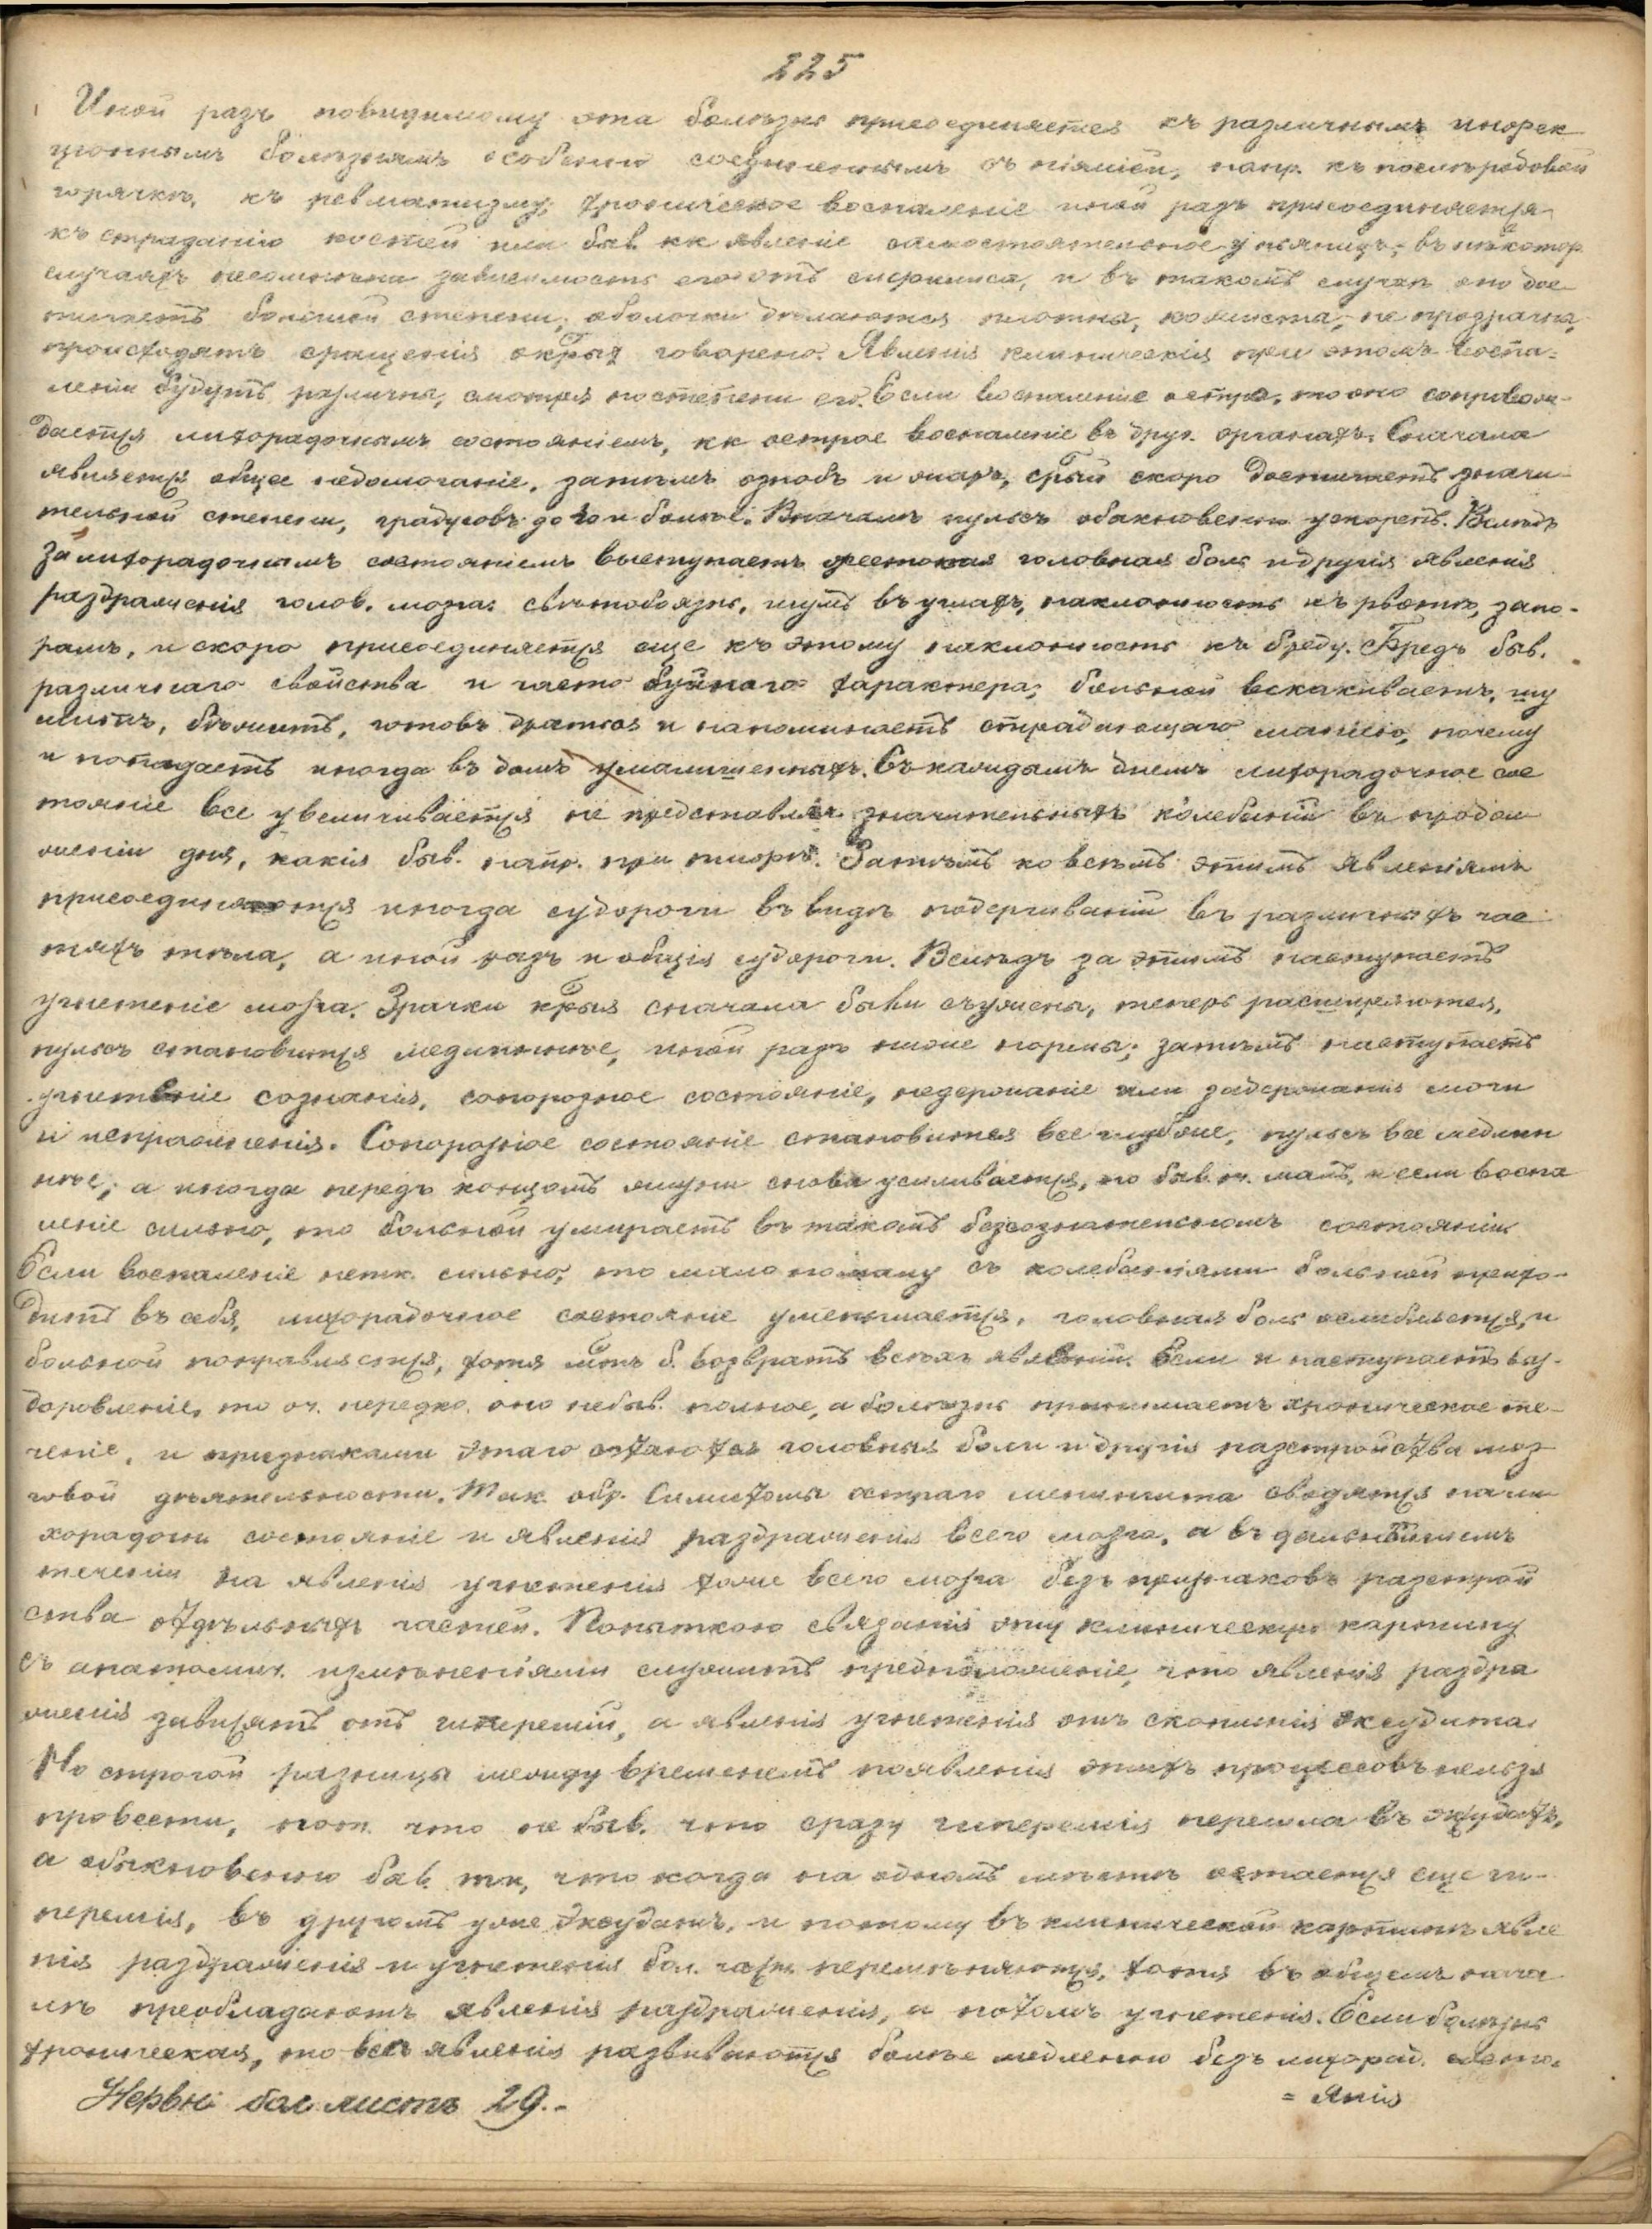 225
Иной разъ повидимому эта болѣзнь присоединяется къ различнымъ инфек
ціоннымъ болѣзнямъ особенно соединеннымъ съ піэміей, напр. къ послѣродовой
горячкѣ, къ ревматизму; хроническое воспаленіе иной разъ присоединяется
къ страданію костей или быв. кк явленіе самостоятельное у пьяницъ; въ нѣкотор.
случаяхъ несомнѣнна зависимость его отъ сифилиса, и въ такомъ случаѣ оно дос-
тигаетъ большой степени; оболочки дѣлаются плотны, кожисты, не прозрачны,
происходятъ сращенія о крыхъ говорено. Явленія клиническія при этомъ воспа-
леніи будутъ различны, смотря по степени его. Если воспаленіе остро, то оно сопровож-
дается лихорадочнымъ состояніемъ, кк острое воспаленіе въ друг. органахъ. Сначала
является общее недомоганіе, затѣмъ ознобъ и жаръ, крый скоро достигаетъ значи-
тельной степени, градусовъ до 40 и болѣе. Вначалѣ пульсъ обыкновенно ускоренъ. Вслѣдъ
за лихорадочнымъ состояніемъ выступаетъ жестокая головная боль и другія явленія
раздраженія голов. мозга: свѣтобоязнь, шумъ въ ушахъ, наклонность къ рвотѣ, запо-
рамъ, и скоро присоединяется еще къ этому наклонность къ бреду. Бредъ быв.
различнаго свойства и часто буйнаго характера; больной вскакиваетъ, шу
митъ, бѣжитъ, готовъ драться и напоминаетъ страдающаго маніею, почему
и попадаетъ иногда въ домъ умалишенныхъ. Съ каждымъ днемъ лихорадочное сос
тояніе все увеличивается не представляя значительныхъ колебаній въ продол
женіи дня, какія быв. напр. при тифѣ. Затѣмъ ко всѣмъ этимъ явленіямъ
присоединяются иногда судороги въ видѣ подергиваній въ различныхъ час
тяхъ тѣла, а иной разъ и общія судороги. Вслѣдъ за этимъ наступаетъ
угнетеніе мозга. Зрачки крыя сначала были съужены, теперь расширяются,
пульсъ становится медленнѣе, иной разъ ниже нормы; затѣмъ наступаетъ
угнетеніе сознанія, сопорозное состояніе, недержаніе или задержаніе мочи
и испражненія. Сопорозное состояніе становится все глубже, пульсъ все медлен
нѣе; а иногда передъ концомъ снова усиливается, но быв. малъ, и если воспа
леніе сильно, то больной умираетъ въ такомъ безсознательномъ состояніи
Если воспаленіе не тк. сильно, то мало по малу съ колебаніями больной прихо-
дитъ въ себя, лихорадочное состояніе уменьшается, головная боль ослабляется, и
больной поправляется, хотя мтъ б. возвратъ всѣхъ явленій. Если и наступаетъ выз-
доровленіе, то оч. нередко оно небыв. полное, а болѣзнь принимаетъ хроническое те-
ченіе, и признаками этаго остаются головныя боли и другія разстройства моз
говой дѣятельности. Так. обр. Симптомы остраго менингита сводятся на ли
хорадочн состояніе и явленія раздраженія всего мозга, а въ дальнѣйшемъ
теченіи на явленія угнетенія тоже всего мозга безъ признаковъ разстрой
ства отдѣльныхъ частей. Попыткою связанія эту клиническую картину
съ анатомич. измѣненіями служитъ предположеніе, что явленія раздра
женія зависятъ отъ гипереміи, а явленія угнетенія отъ скопленія эксудата.
Но строгой разницы между временемъ появленія этихъ процессовъ нельзя
провести, пот. что не быв. что сразу гиперемія перешла въ эксудатъ,
а обыкновенно быв. тк, что когда на одномъ мѣстѣ остается еще ги-
перемія, въ другомъ уже эксудатъ, и потому въ клинической картинѣ явле
нія раздраженія и угнетенія бол. част. перемѣняются, хотя въ общемъ нача
лѣ преобладаютъ явленія раздраженія, а потомъ угнетенія. Если болѣзнь
хроническая, то всѣ явленія развиваются болѣе медленно безъ лихорад. состо-
= янія
Нервн. бол. листъ 29.-